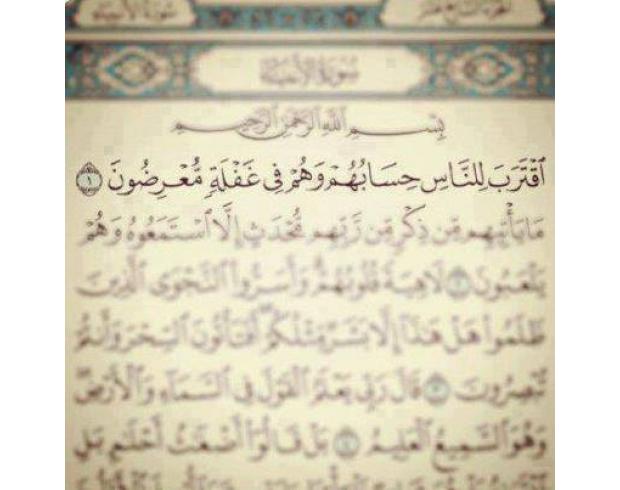 سورة الأنبياء
سورة الأنبياء
بِسْمِ اللَّهِ الرَّحْمَٰنِ الرَّحِيمِ
ٱقْتَرَبَ لِلنَّاسِ حِسَابُهُمْ وَهُمْ فِى غَفْلَةٍ مُّعْرِضُونَ ١
مَا يَأْتِيهِم مِّن ذِكْرٍ مِّن رَّبِّهِم مُّحْدَثٍ إِلَّا ٱسْتَمَعُوهُ وَهُمْ
يَلْعَبُونَ ٢ لَاهِيَةً قُلُوبُهُمْ وَأَسَرُّوا۟ ٱلنَّجْوَى ٱلَّذِينَ
ظَلَمُوا۟ هَلْ هَٰذَآ إِلَّا بَشَرٌ مِّثْلُكُمْ أَفَتَأْتُونَ ٱلسِّحْرَ وَأَنتُمْ
تُبْصِرُونَ ٣ قَالَ رَبِّى يَعْلَمُ ٱلْقَوْلَ فِى ٱلسَّمَآءِ وَٱلْأَرْضِ
وَهُوَ ٱلسَّمِيعُ ٱلْعَلِيمُ ٤ بَلْ قَالُوٓا۟ أَضْغَٰثُ أَحْلَٰمٍۭ بَلِ